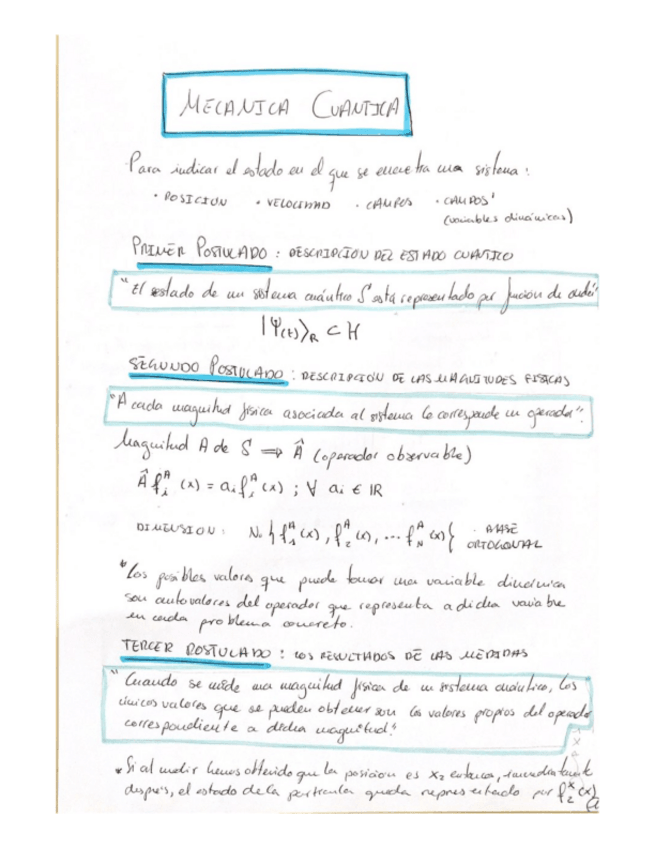 MECANICA CUANTICA
Para indicar el estado en el que se encuentra una sistema:
· POSICION · VELOCIDAD · CAMPOS · CAMPOS'
(variables dinámicas)
PRIMER POSTULADO: DESCRIPCION DEL ESTADO CUANTICO
"El estado de un sistema cuántico S está representado por función de onda:
|Ψ(t)⟩R ⊂ H
SEGUNDO POSTULADO: DESCRIPCIÓN DE LAS MAGNITUDES FISICAS
"A cada magnitud física asociada al sistema le corresponde un operador".
Magnitud A de S ⟹ Â (operador observable)
Â fᵢᴬ (x) = aᵢ fᵢᴬ (x) ; ∀ aᵢ ∈ IR
DIMENSION: N. {f₁ᴬ(x), f₂ᴬ(x), ... f_Nᴬ(x)} · BASE
ORTOGONAL
"Los posibles valores que puede tomar una variable dinámica
son autovalores del operador que representa a dicha variable
en cada problema concreto.
TERCER POSTULADO: LOS RESULTADOS DE LAS MEDIDAS
"Cuando se mide una magnitud física de un sistema cuántico, los
únicos valores que se pueden obtener son los valores propios del operador
correspondiente a dicha magnitud."
* Si al medir hemos obtenido que la posicion es x₂ entonces, inmediatamente
después, el estado de la partícula queda representado por f₂ˣ(x)